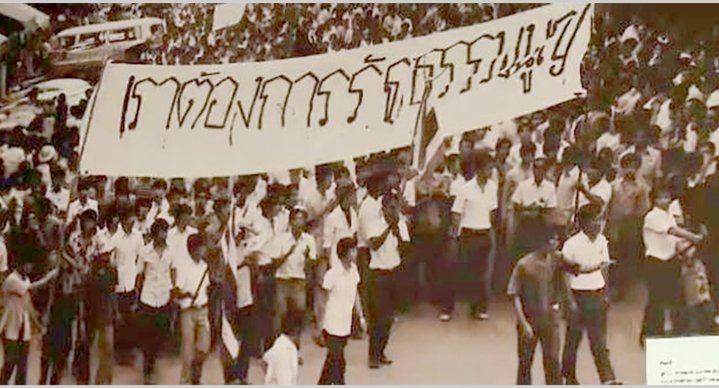 เราต้องการรัฐธรรมนูญ